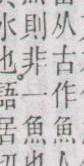 从古作魚
則非一魚
水也語居